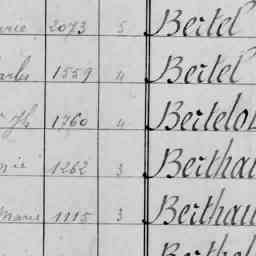 2073 5 Bertel
1559 4 Bertel
1760 4 Bertelo
1262 3 Berthau
Marie 1115 3 Berthau